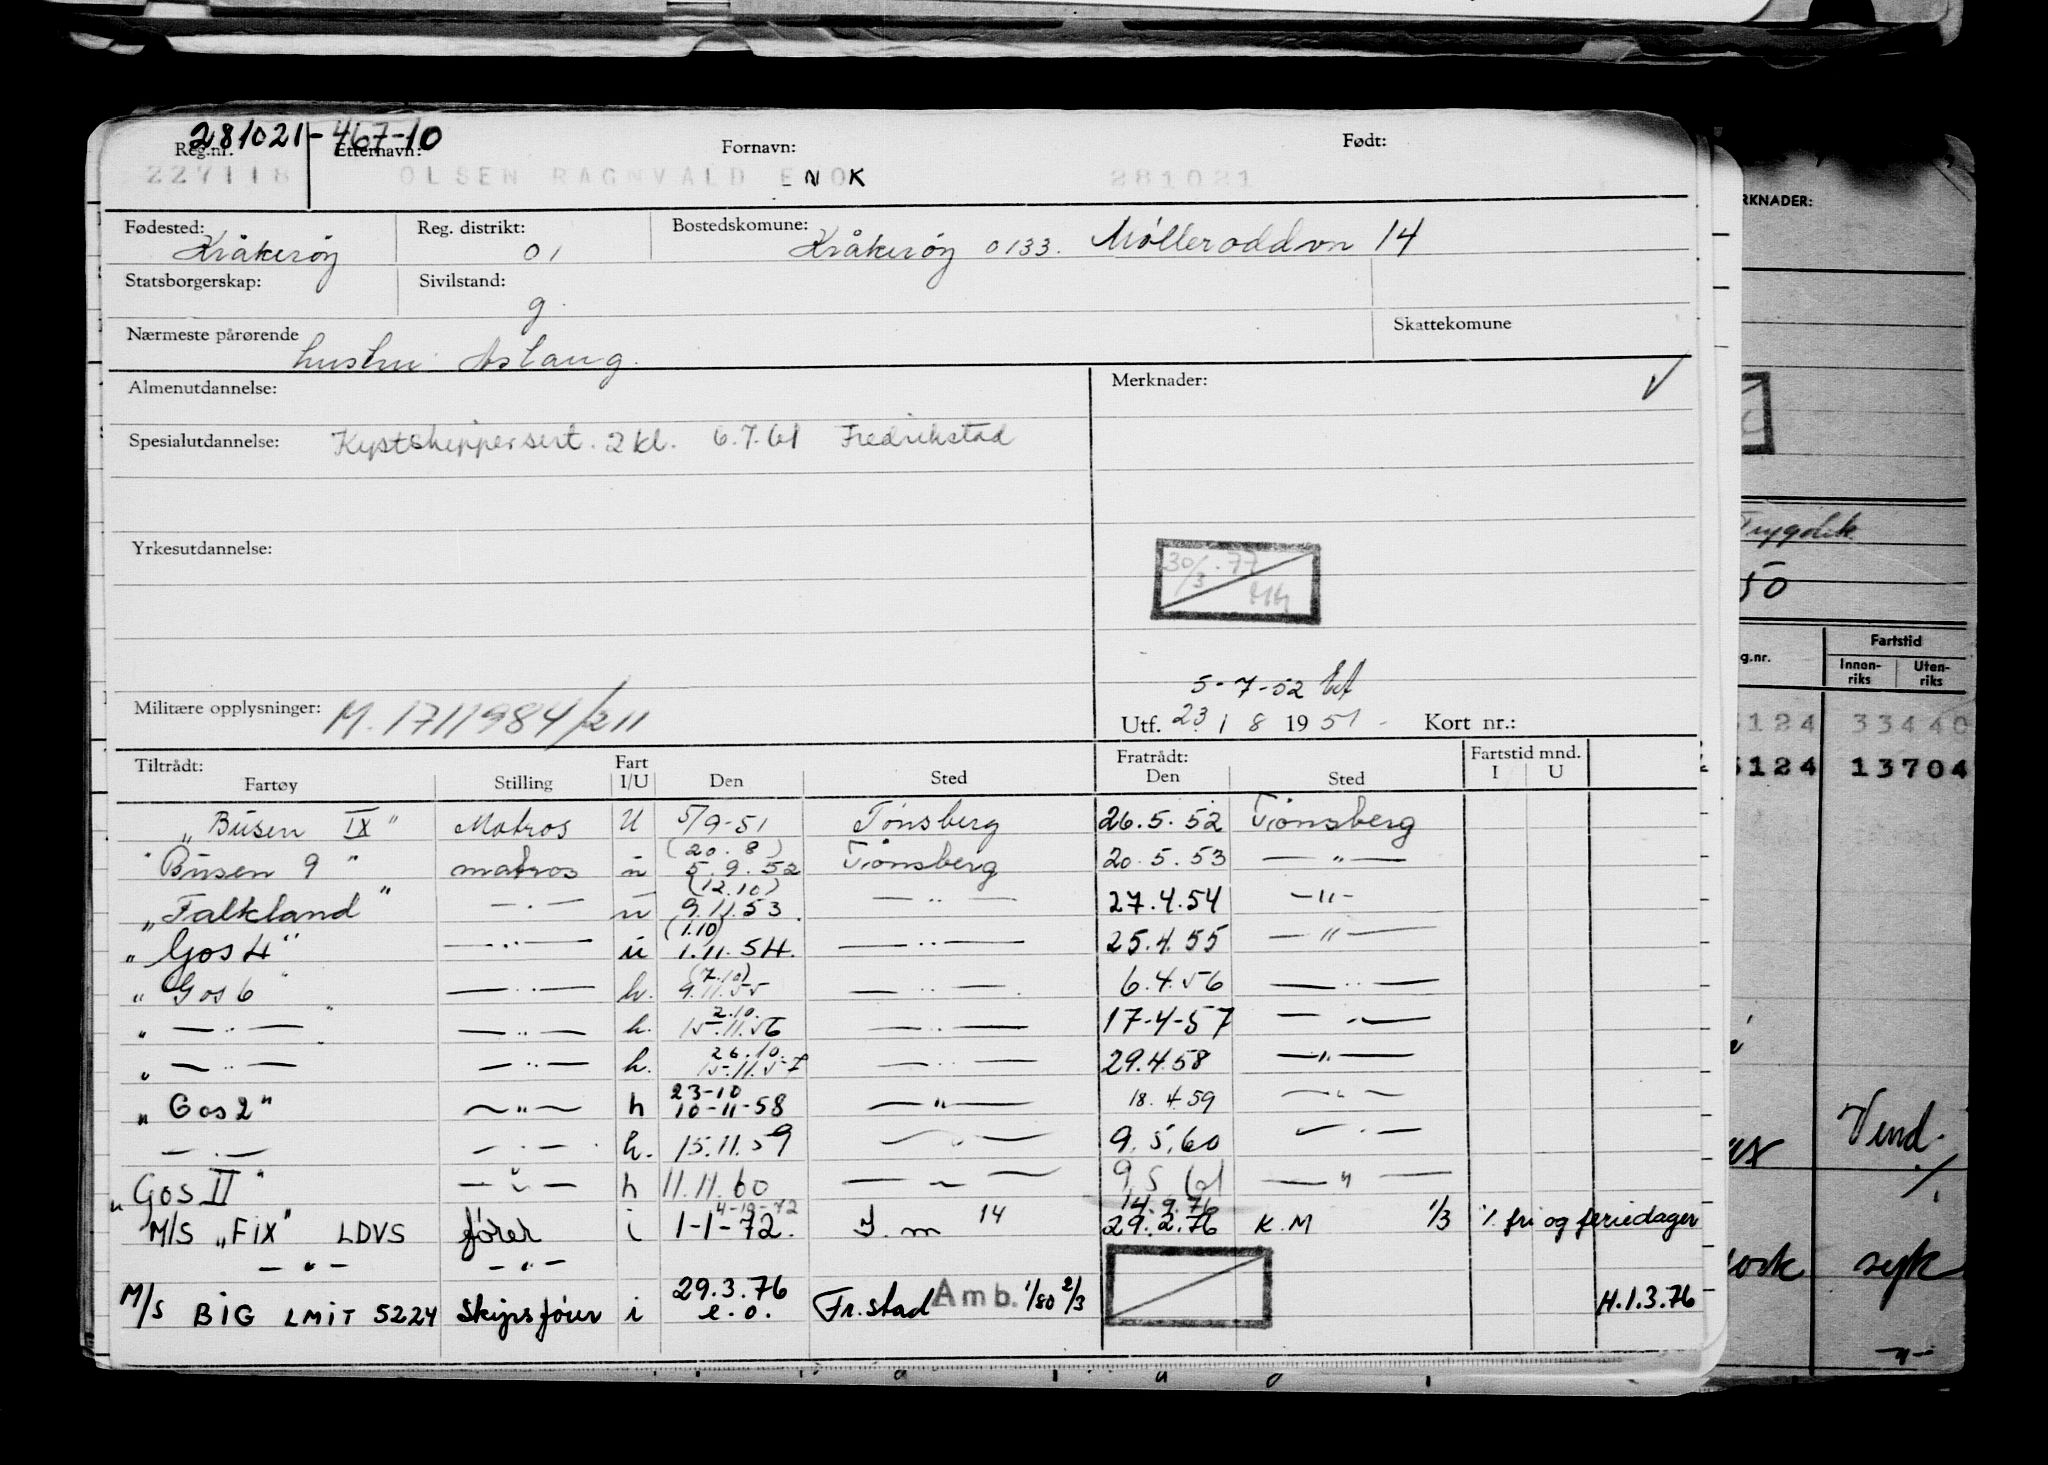 281021-467-10
Reg.nr. Etternavn: Fornavn: Født:
227118 OLSEN RAGNVALD ENOK 281021
Fødested: Reg. distrikt: Bostedskomune:
Kråkerøy 01 Kråkerøy 0133. Mølleroddvn 14
Statsborgerskap: Sivilstand:
g.
Nærmeste pårørende Skattekomune
hustru Aslaug.
Almenutdannelse: Merknader:
Spesialutdannelse: Kystskippersert. 2 kl. 6.7.61 Fredrikstad
Yrkesutdannelse:
30/3.77
5-7-52
Militære opplysninger: M. 1711984/211 Utf. 23 / 8 1951 Kort nr.:
Tiltrådt: Fart Fratrådt: Fartstid mnd.
Fartøy Stilling I/U Den Sted Den Sted I U
"Busen IX" Matros U 5/9-51 Tønsberg 26.5.52 Tønsberg
(20.8)
"Busen 9" matros u 5.9.52 Tønsberg 20.5.53 —"—
(12.10)
"Falkland" —"— u 9.11.53. —"— 27.4.54 —"—
(1.10)
"Gos 4" —"— u 1.11.54. —"— 25.4.55 —"—
(7.10)
"Gos 6" —"— h. 9.11.55 —"— 6.4.56 —"—
2.10.
"—"—" —"— h. 15.11.56 —"— 17-4-57 —"—
26.10.
"—"— —"— h. 15.11.57 —"— 29.4.58 —"—
23-10
"Gos 2" —"— h 10-11-58 —"— 18.4.59 —"—
—"— —"— h. 15.11.59 —"— 9.5.60 —"—
"Gos II" —"— h 11.11.60 —"— 9.5.61 —"—
4-10-72 14.9.76
M/S "FIX" LDVS fører i 1-1-72. J.m 14 29.2.76 K.M 1/3 % fri og feriedager
—"— —"—
29.3.76
M/S BIG LMIT 5224 Skipsfører i e.o. Fr.stad Amb. 1/80 2/3 H.1.3.76
RKNADER:
50
g.nr. Fartstid
Innen-riks Uten-riks
5124 33440
5124 13704
Vend.
syk
—"—